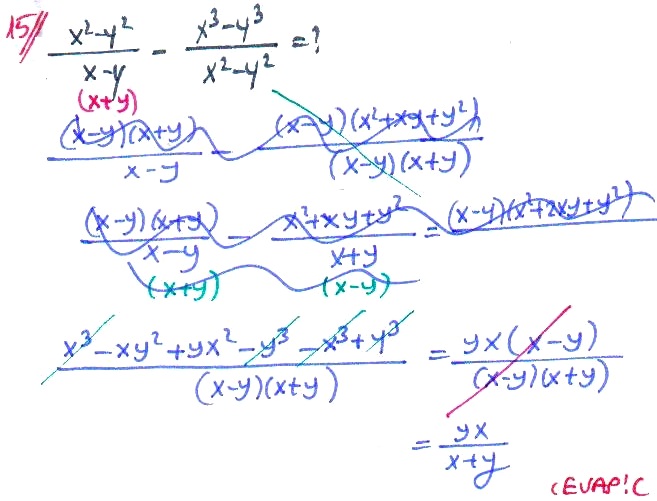 15// (x²-y²)/(x-y) - (x³-y³)/(x²-y²) = ?
(x+y)
((x-y)(x+y))/(x-y) - ((x-y)(x²+xy+y²))/((x-y)(x+y))
((x-y)(x+y))/(x-y) - (x²+xy+y²)/(x+y) = (x-y)(x²+2xy+y²)
(x+y) (x-y)
(x³-xy²+yx²-y³-x³+y³)/((x-y)(x+y)) = (yx(x-y))/((x-y)(x+y))
= yx/(x+y)
CEVAP!C